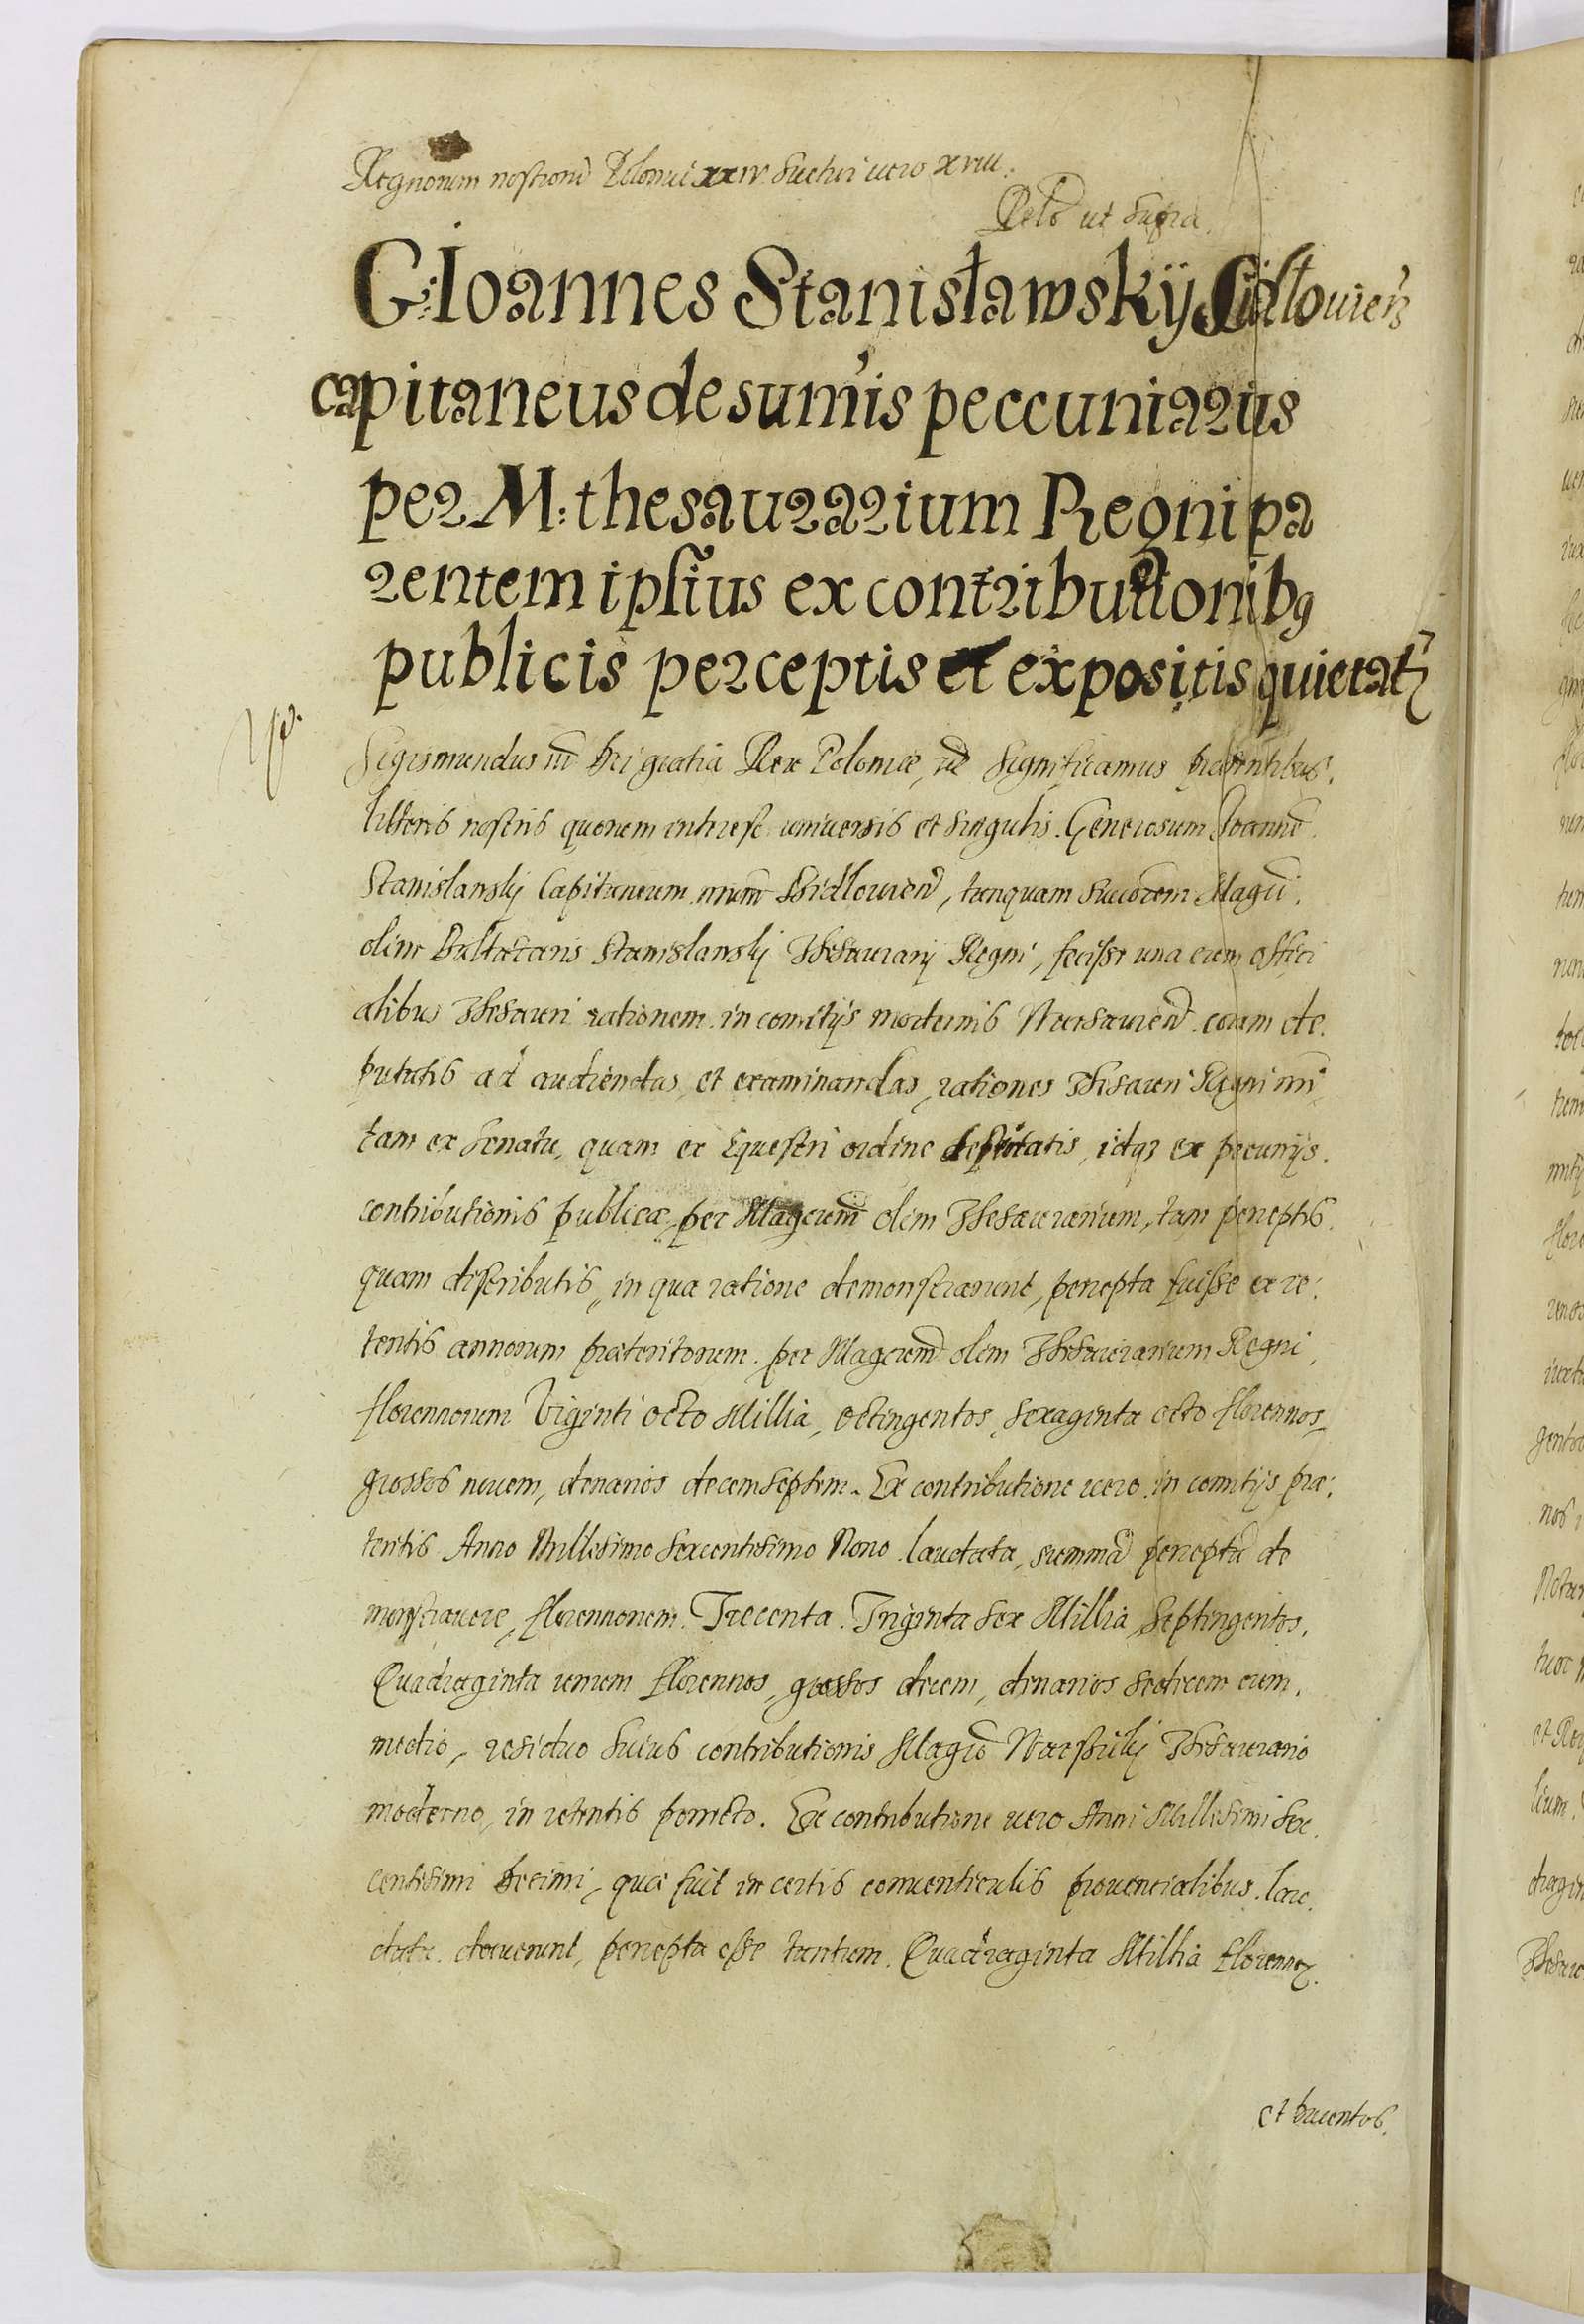 Regnorum nostrorū Poloniæ xxiv Suetiæ uero xviii.
Relō ut supra.
G: Ioannes Stanisławskÿ Sidlouieñ
capitaneus de sum̃is peccuniariis
per M: thesaurarium Regni pa
rentem ipsius ex contributionibq
publicis perceptis et expositis quietatr
Sigismundus iii Dei gratia Rex Poloniæ, etc Significamus præsentibus.
litteris nostris quorum interest uniuersis et singulis. Generosum Joannē.
Stanislawskj Capitaneum nrūm Shidlouieñ, tanquam sucorem Magci.
olim Baltazaris Stanislawskj Thesaurarij Regni, fecisse una cum offici
alibus Thesauri rationem in comitijs modernis Warsauieñ coram de.
putatis ad audiendas, et examinandas, rationes Thesauri Regni nri,
tam ex Senatu, quam ex Equestri ordine deputatis, idq3 ex pecunijs.
contributionis publicæ, per Magcum olim Thesaurarium, tam perceptis.
quam distributis, in qua ratione demonstrarunt, percepta fuisse ex re:
tentis annorum præteritorum per Magcum olim Thesaurarium Regni,
florennorum Viginti octo Millia, octingentos, sexaginta octo florennos,
grossos nouem, denarios decemseptem. Ex contributione uero in comitijs præ:
teritis Anno Millesimo Sexcentesimo Nono laudata, summā perceptā de
monstrauere, florennorum. Trecenta. Triginta sex Millia, Septingentos,
Quadraginta unum florennos, grossos decem, denarios sedecem cum.
medio, residuo huius contributionis Magco Warssickj Thesaurario
moderno, in retentis porrecto. Ex contributione uero Anni Millesimi Sex.
centesimi Decimi, quæ fuit in certis conuenticulis prouencialibus. lau.
data. docuerunt, percepta esse tantum. Quadraginta Millia florennor.
et ducentos.